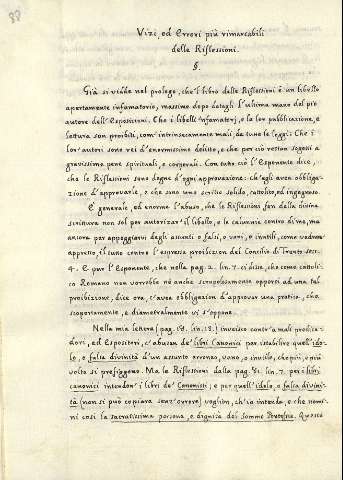 88
Vizi, ed Errori più rimarcabili
delle Riflessioni.
§.
Già si vidde nel prologo, che 'l libro delle Riflessioni è un libello
apertamente infamatorio, massime dopo datagli l'ultima mano dal pio
autore dell'Esposizioni. Che i libelli infamatorj, e la lor pubblicazione, e
lettura son proibiti, com'intrinsecamente mali, da tutte le leggi: Che i
lor autori sono rei d'enormissimo delitto, e che per ciò restan sogetti a
gravissime pene spirituali, e corporali. Con tutto ciò l'Esponente dice,
che le Riflessioni sono degne d'ogni approvazione: ch'egli avea obbliga-
zione d'approvarle, e che sono uno scritto solido, cattolico, ed ingegnoso.
È generale, ed enorme l'abuso, che le Riflessioni fan della divina
scrittura non sol per autorizar' il libello, e le calunnie contro di me, ma
ancora per appoggiarvi degli assunti o falsi, o vani, e inutili, come vedremo
appresso, il tutto contro l'espressa proibizion del Concilio di Trento sess.
4. E pur l'Esponente, che nella pag. 2. lin. 7. ci disse, che come cattoli-
co Romano non vorrebbe nè anche scrupolosamente opporsi ad una tal
proibizione, dice ora, ch'avea obbligazion d'approvar una pratica, che
scopertamente, e diametralmente vi s'oppone.
Nella mia lettera (pag. 18. lin. 12.) invesisco contr'a' mali predica-
dori, ed Espositori, c'abusan de' libri Canonici per istabilire quell'ido-
lo, e falsa divinità d'un assunto erroneo, vano, o inutile, che più, e più
volte si prefiggono. Ma le Riflessioni dalla pag. 81. lin. 7. per i libri
canonici intendon' i libri de' Canonisti; e per quell'idolo, e falsa divini-
tà (non si può copiare senz'orrore) voglion, ch'io intenda, e che nomi-
ni così la sacratissima persona, e dignità del Sommo Pontefice. Questo